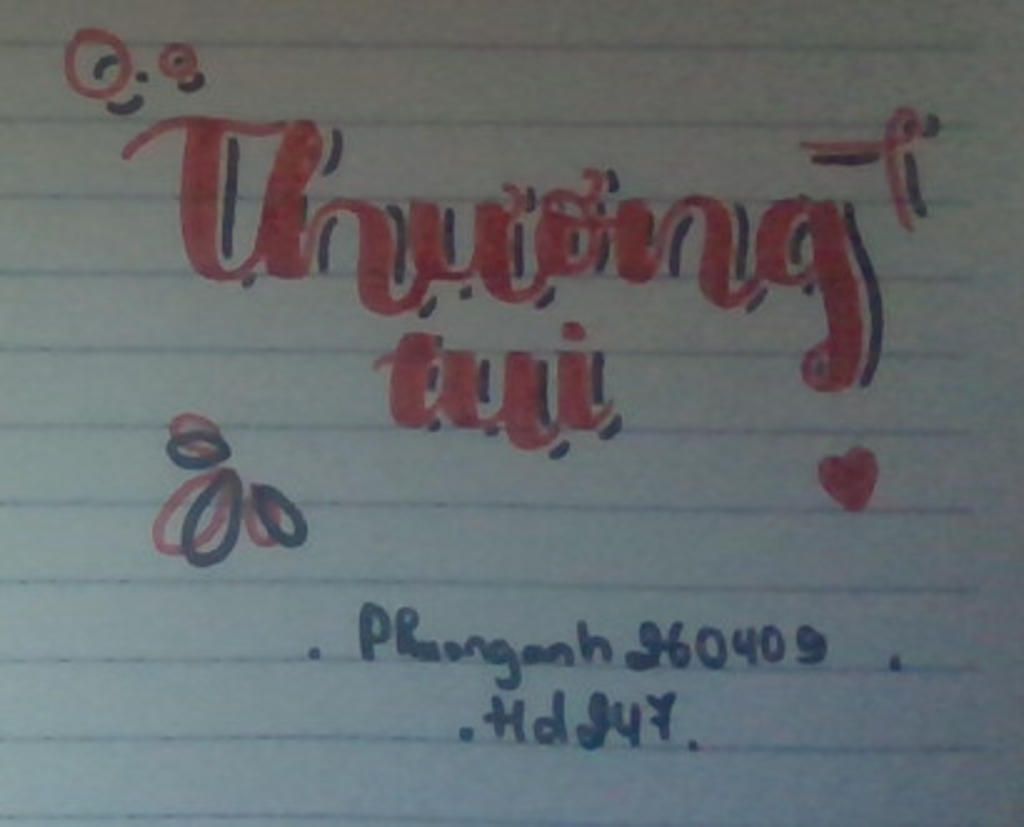 Thương
tui
. Phuonganh260409 .
. Hd247.